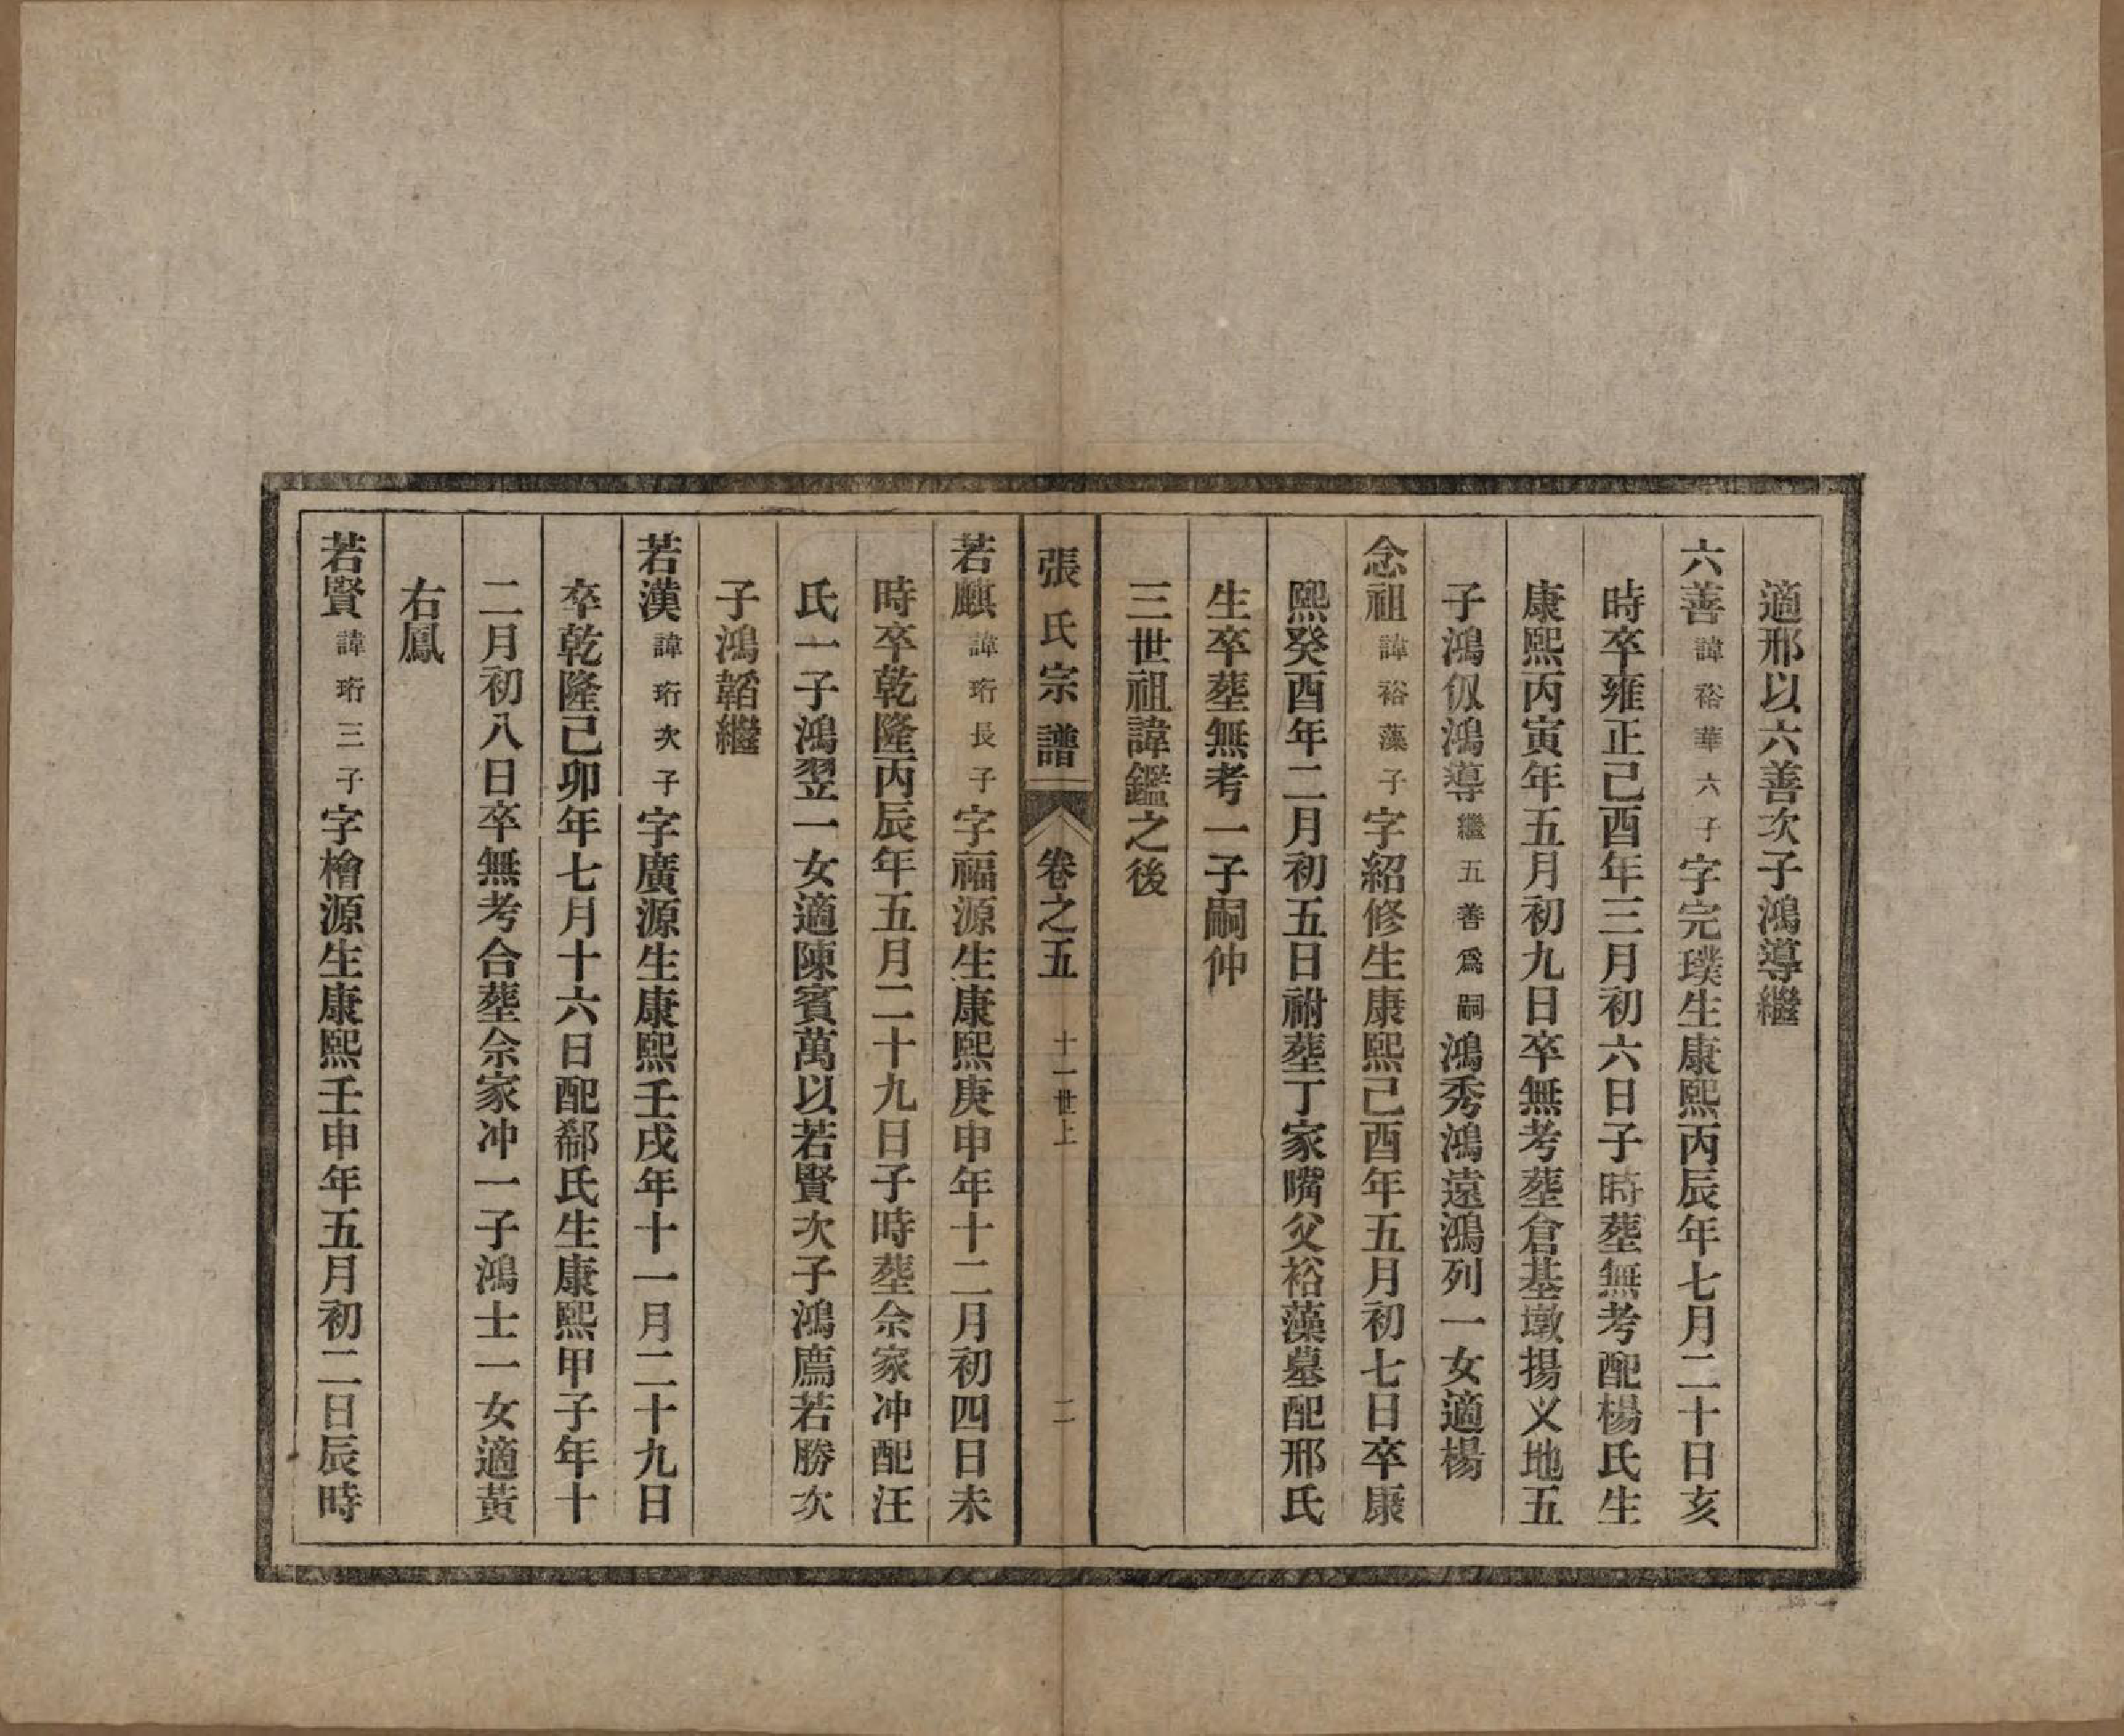 適邢以六善次子鴻導繼
六善諱裕華六子字完璞生康熙丙辰年七月二十日亥
時卒雍正己酉年三月初六日子時葬無考配楊氏生
康熙丙寅年五月初九日卒無考葬倉基墩揚义地五
子鴻仭鴻導繼五善爲嗣鴻秀鴻遠鴻列一女適楊
念祖諱裕藻子字紹修生康熙己酉年五月初七日卒康
熙癸酉年二月初五日祔葬丁家嘴父裕藻墓配邢氏
生卒葬無考一子嗣仲
三世祖諱鑑之後
張氏宗譜 卷之五 十一世上 二
若麒諱珩長子字福源生康熙庚申年十二月初四日未
時卒乾隆丙辰年五月二十九日子時葬佘家冲配汪
氏一子鴻翌一女適陳賓萬以若賢次子鴻廌若勝次
子鴻韜繼
若漢諱珩次子字廣源生康熙壬戌年十一月二十九日
卒乾隆己卯年七月十六日配郗氏生康熙甲子年十
二月初八日卒無考合葬佘家冲一子鴻士一女適黃
右鳳
若賢諱珩三子字檜源生康熙壬申年五月初二日辰時